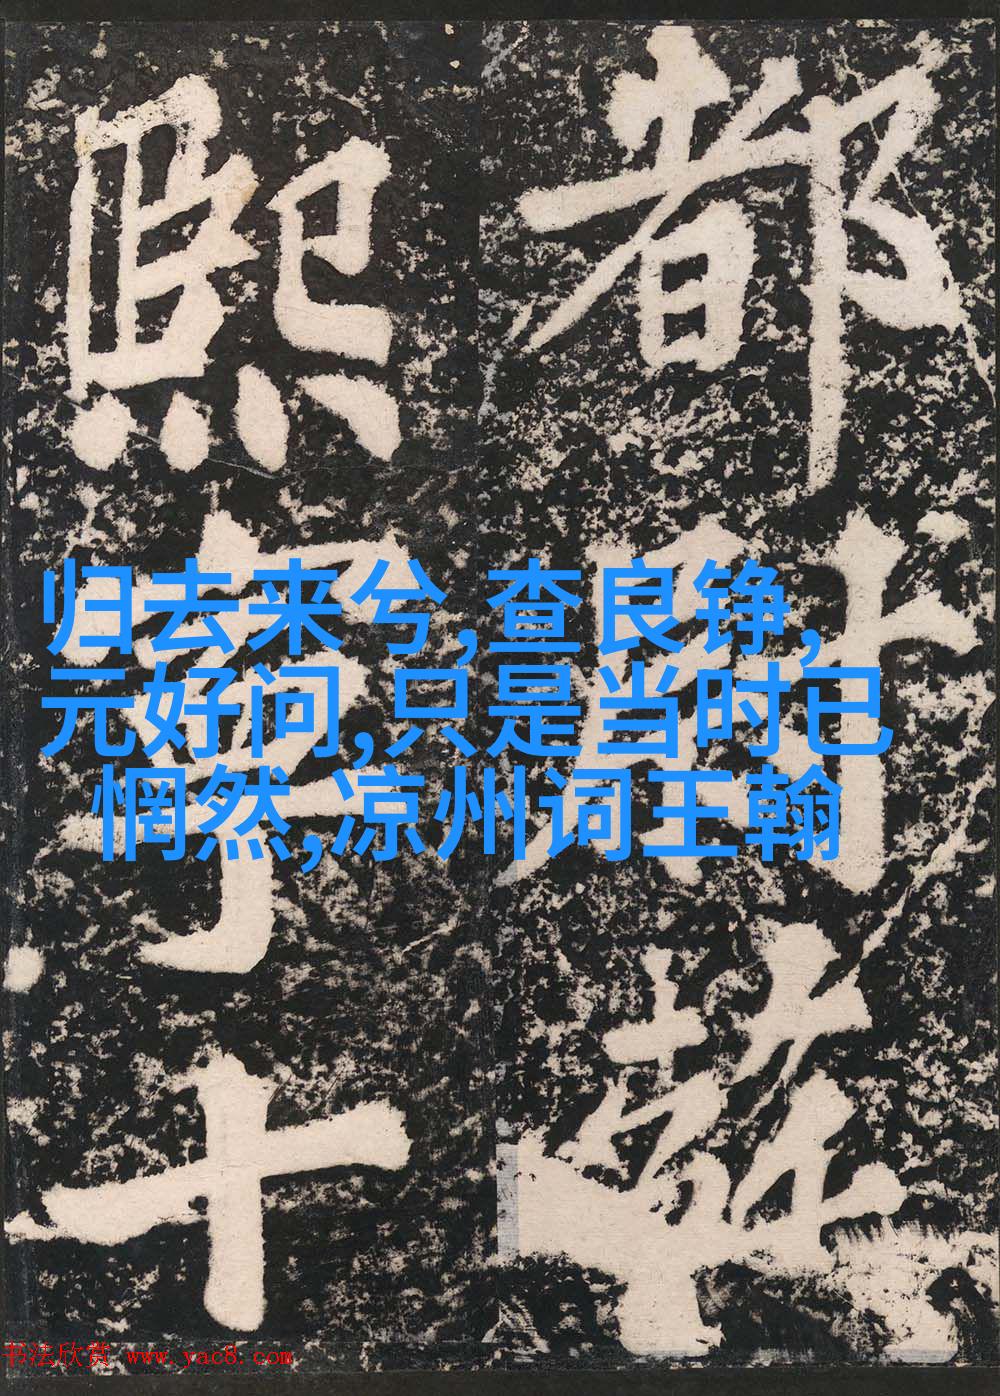 都
熙寧十
归去来兮,查良铮,
元好问,只是当时已
惘然,凉州词王翰
书法欣赏 www.yac8.com